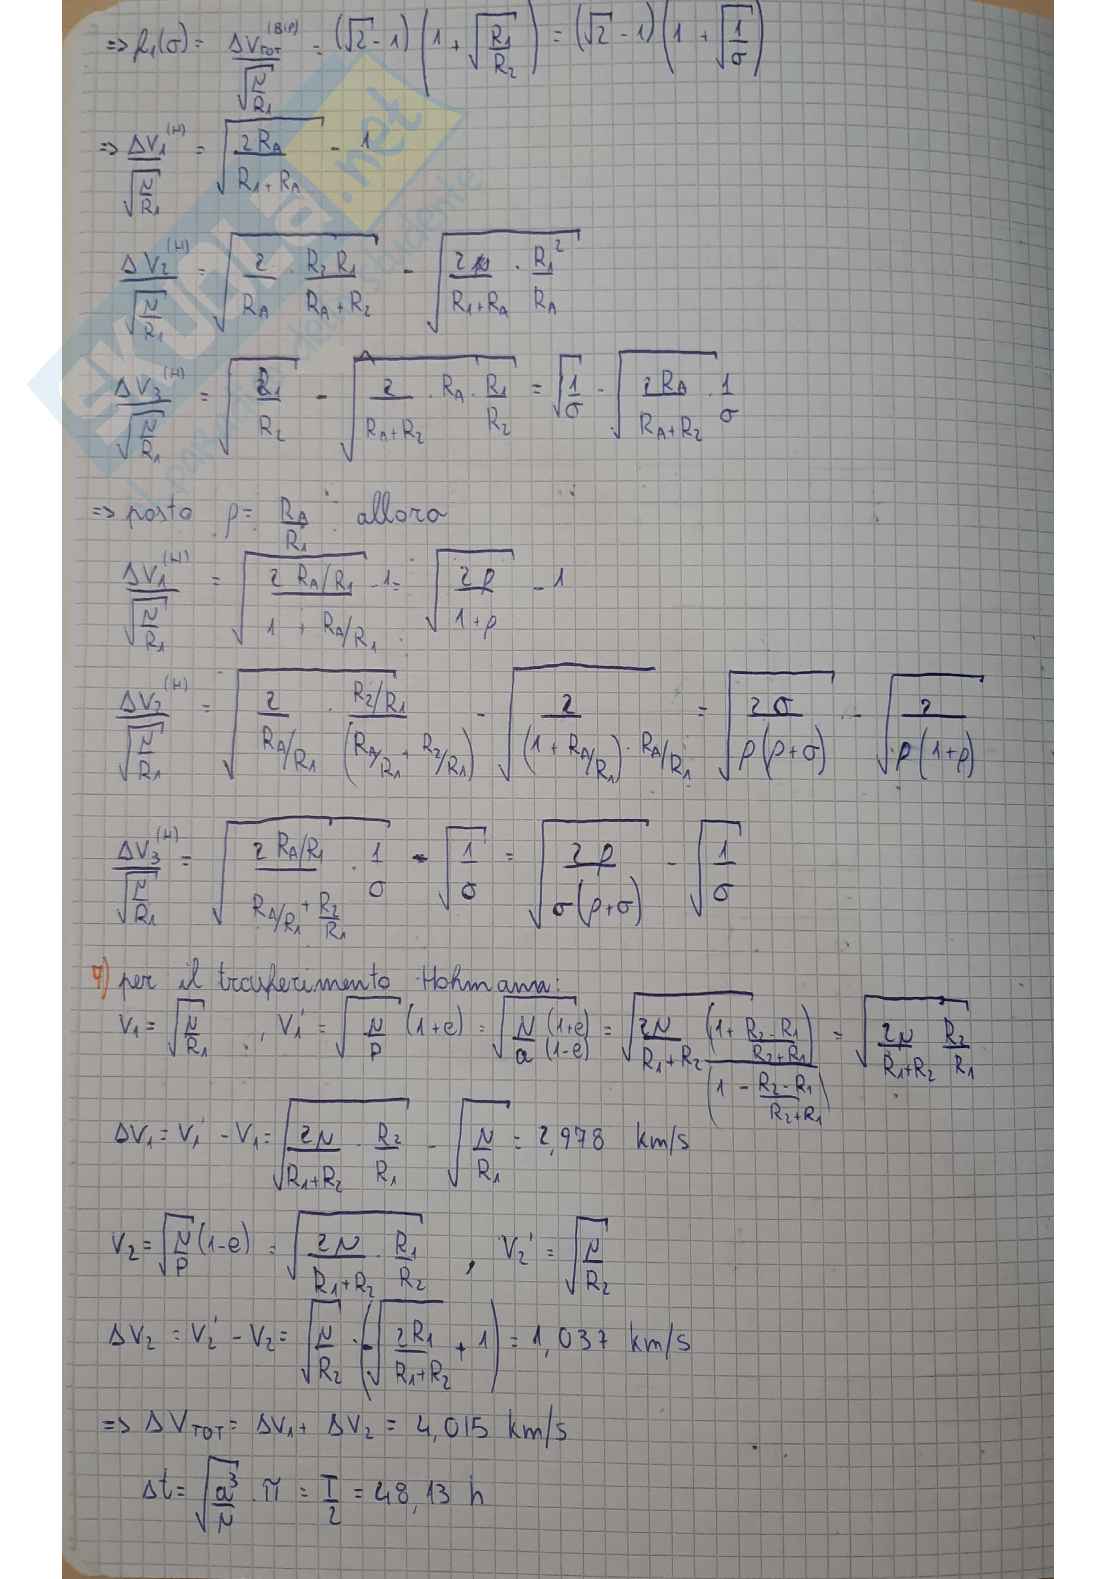 => f₁(σ) = ΔV_TOT^(BiP) / √(μ/R₁) = (√2 - 1) (1 + √(R₁/R₂)) = (√2 - 1) (1 + √(1/σ))
=> ΔV₁^(H) / √(μ/R₁) = √(2R_A / (R₁+R_A)) - 1
ΔV₂^(H) / √(μ/R₁) = √(2/R_A · R₂R₁/(R_A+R₂)) - √(2μ/(R₁+R_A) · R₁²/R_A)
ΔV₃^(H) / √(μ/R₁) = √(R₁/R₂) - √(2/(R_A+R₂) · R_A · R₁/R₂) = √(1/σ) - √(2R_A/(R_A+R₂) · 1/σ)
=> posto ρ = R_A/R₁ allora
ΔV₁^(H) / √(μ/R₁) = √(2 R_A/R₁ / (1 + R_A/R₁)) - 1 = √(2ρ/(1+ρ)) - 1
ΔV₂^(H) / √(μ/R₁) = √(2/(R_A/R₁) · (R₂/R₁)/(R_A/R₁ + R₂/R₁)) - √(2/((1 + R_A/R₁) · R_A/R₁)) = √(2σ/(ρ(ρ+σ))) - √(2/(ρ(1+ρ)))
ΔV₃^(H) / √(μ/R₁) = √(2 R_A/R₁ / (R_A/R₁ + R₂/R₁) · 1/σ) - √(1/σ) = √(2ρ/(σ(ρ+σ))) - √(1/σ)
7) per il trasferimento Hohmann:
V₁ = √(μ/R₁) , V₁' = √(μ/p) (1+e) = √(μ/a (1+e)/(1-e)) = √(2μ/(R₁+R₂) (1 + (R₂-R₁)/(R₂+R₁)) / (1 - (R₂-R₁)/(R₂+R₁))) = √(2μ/(R₁+R₂) R₂/R₁)
ΔV₁ = V₁' - V₁ = √(2μ/(R₁+R₂) · R₂/R₁) - √(μ/R₁) = 2,978 km/s
V₂ = √(μ/p) (1-e) = √(2μ/(R₁+R₂) · R₁/R₂) , V₂' = √(μ/R₂)
ΔV₂ = V₂' - V₂ = √(μ/R₂) · (-√(2R₁/(R₁+R₂)) + 1) = 1,037 km/s
=> ΔV_TOT = ΔV₁ + ΔV₂ = 4,015 km/s
Δt = √(a³/μ) · π = T/2 = 48,13 h
SKUOLA.net